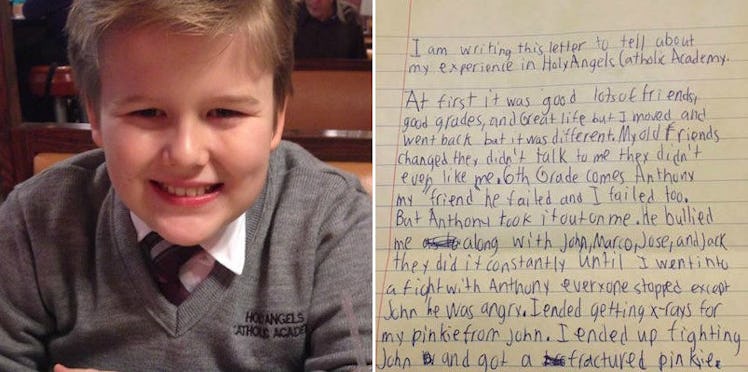 HOLY ANGELS
CATHOLIC ACADE
I am writing this letter to tell about
my experience in Holy Angels Catholic Academy.
At first it was good lots of friends,
good grades, and Great life but I moved and
went back but it was different. My old friends
changed they didn't talk to me they didn't
even like me. 6th Grade comes Anthony
my "friend" he failed and I failed too.
But Anthony took it out on me. he bullied
me along with John, Marco, Jose, and Jack
they did it constantly until I went into
a fight with Anthony everyone stopped except
John he was angry. I ended getting x-rays for
my pinkie from John. I ended up fighting
John and got a fractured pinkie.